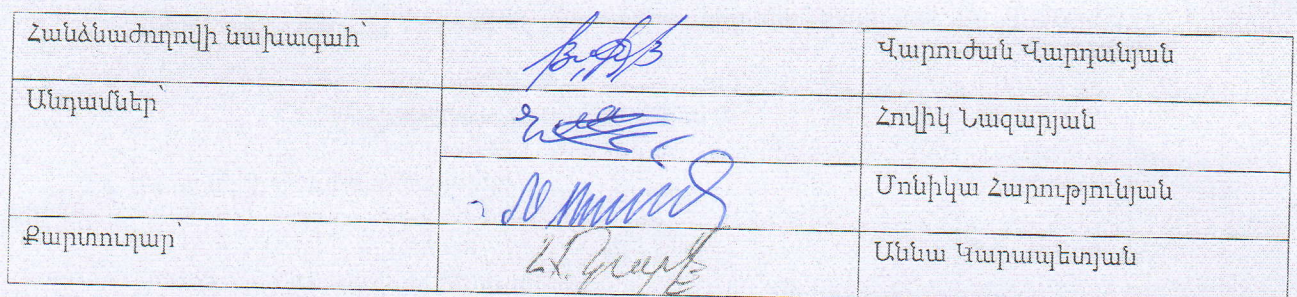 Հանձնաժողովի նախագահ՝ Վարուժան Վարդանյան
Անդամներ՝ Հովիկ Նազարյան
Մոնիկա Հարությունյան
Քարտուղար՝ Աննա Կարապետյան